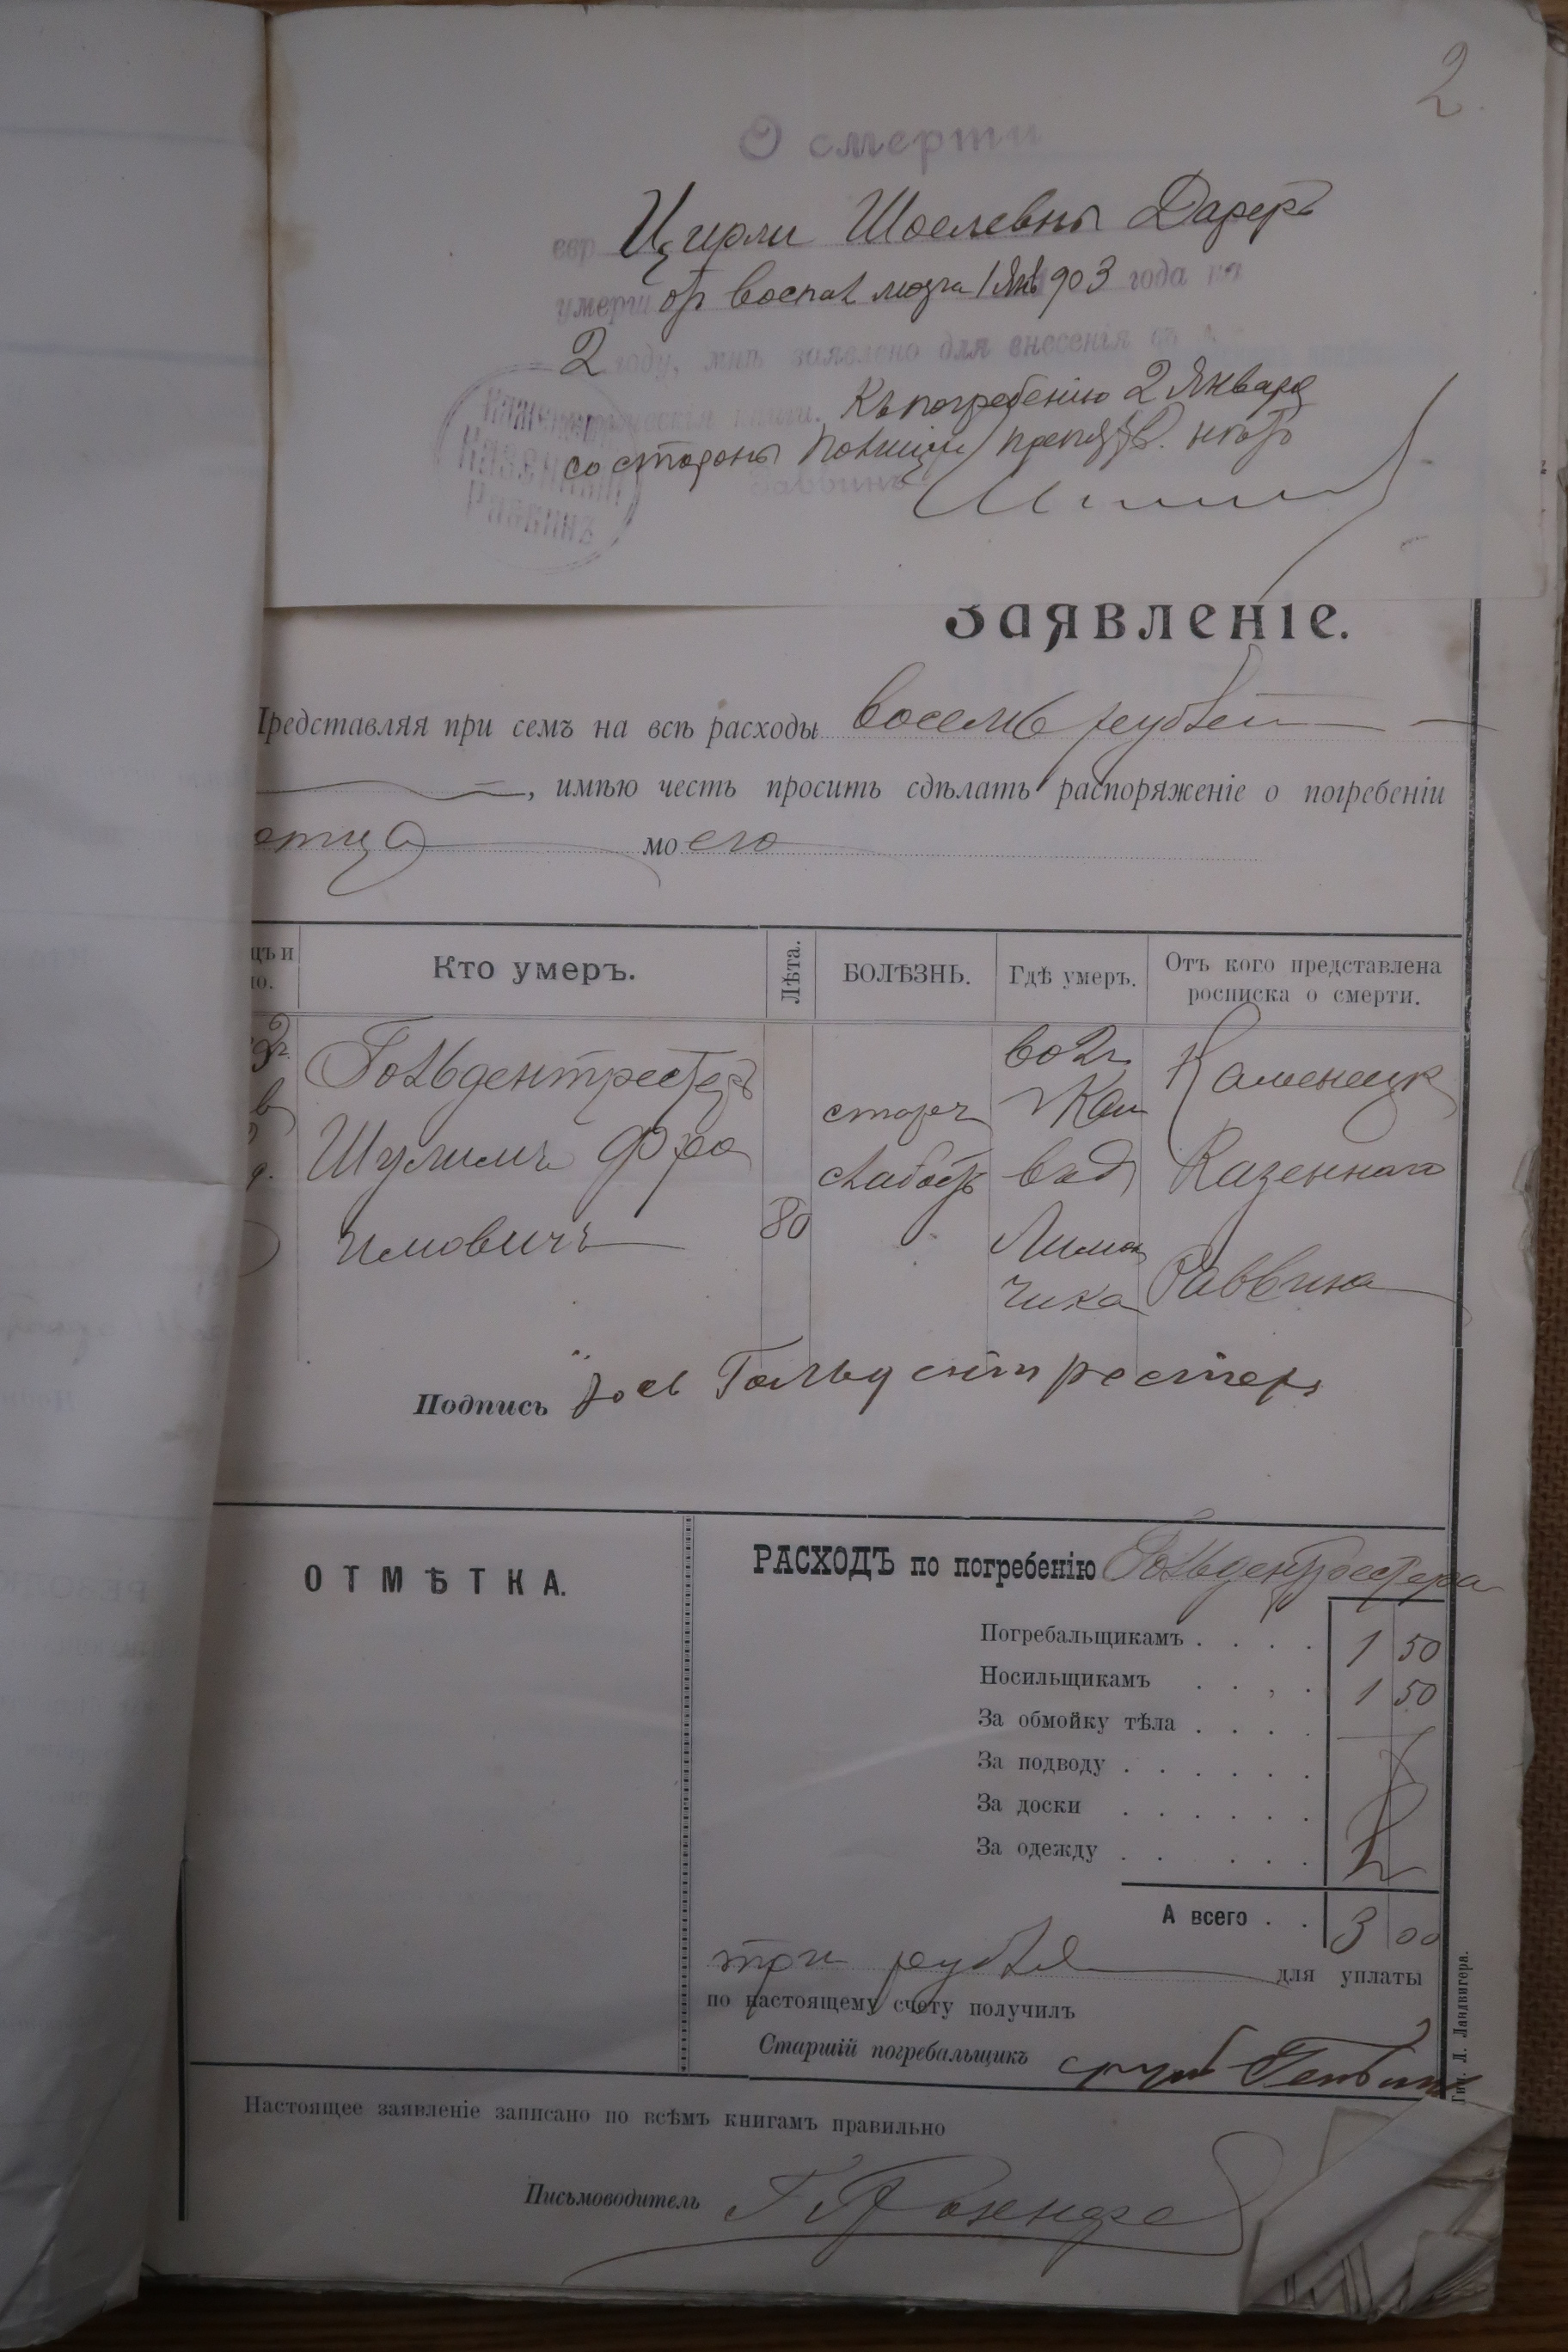 2
О смерти
евр Цирли Шоелевны
умерш от воспал мозга 1 Янв 903 года на
2 году, мнѣ заявлено для внесенія въ
книги. Къ погребенію 2 Января
со стороны полиціи препятв. нѣтъ
Казенный
Раввинъ
Заявленіе.
Представляя при семъ на всѣ расходы восемь рублей
, имѣю честь просить сдѣлать распоряженіе о погребеніи
отца моего
цъ и Кто умеръ. Лѣта. БОЛѢЗНЬ. Гдѣ умеръ. Отъ кого представлена
ло. росписка о смерти.
Гольдентрестеръ во 2ч Каменецк
Шулимъ Фро старч Кам Казеннаго
слабость въ д
имовичъ 80 Лимон Раввина
чика
Подпись Іось Гольдентрестеръ
ОТМѢТКА.
РАСХОДЪ по погребенію Гольдентрестера
Погребальщикамъ . . . . 1 50
Носильщикамъ . . , . 1 50
За обмойку тѣла . . . .
За подводу . . . . . .
За доски . . . . . .
За одежду . . . . . .
А всего . . 3 00
три рубля для уплаты
по настоящему счету получилъ
Старшій погребальщикъ
Настоящее заявленіе записано по всѣмъ книгамъ правильно
Письмоводитель
Тип. Л. Ландвигера.